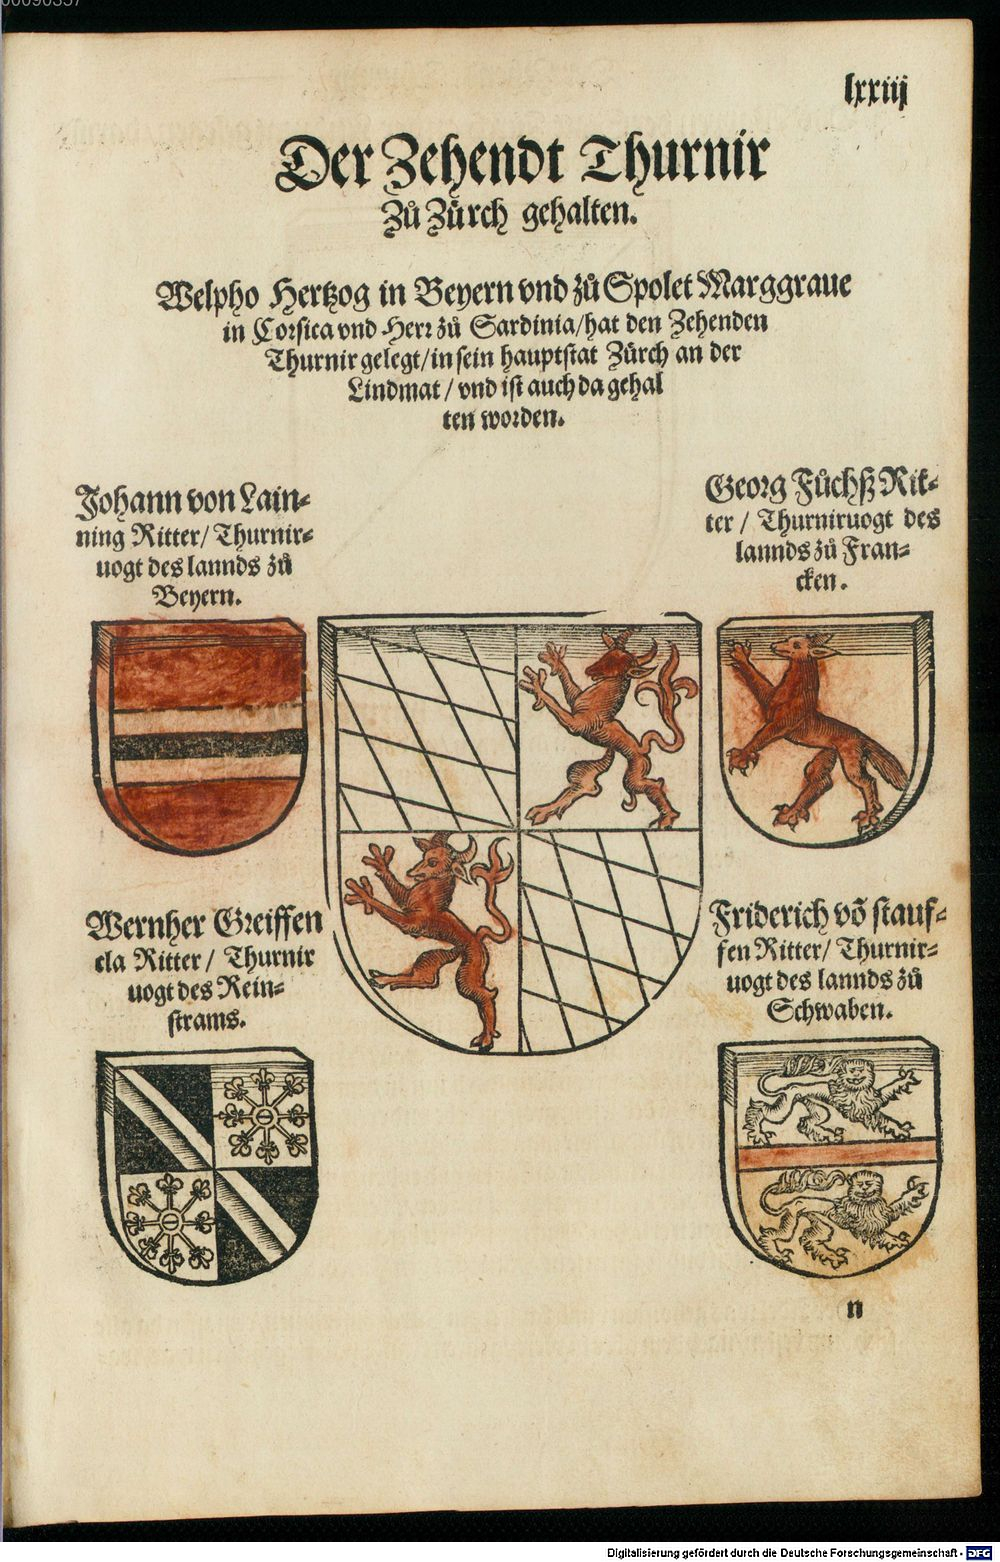 lxxiij
Der Zehendt Thurnir
Zů Zürch gehalten.
Welpho Hertzog in Beyern vnd zů Spolet Marggraue
in Corsica vnd Herr zů Sardinia/hat den Zehenden
Thurnir gelegt/in sein hauptstat Zürch an der
Lindmat/vnd ist auch da gehal
ten worden.
Johann von Lain-
ning Ritter/Thurnir-
uogt des lannds zů
Beyern.
Georg Fůchß Rit-
ter/Thurniruogt des
lannds zů Fran-
cken.
Wernher Greiffen
cla Ritter/Thurnir
uogt des Rein-
strams.
Friderich võ stauf-
fen Ritter/Thurnir-
uogt des lannds zů
Schwaben.
n
Digitalisierung gefördert durch die Deutsche Forschungsgemeinschaft - DFG